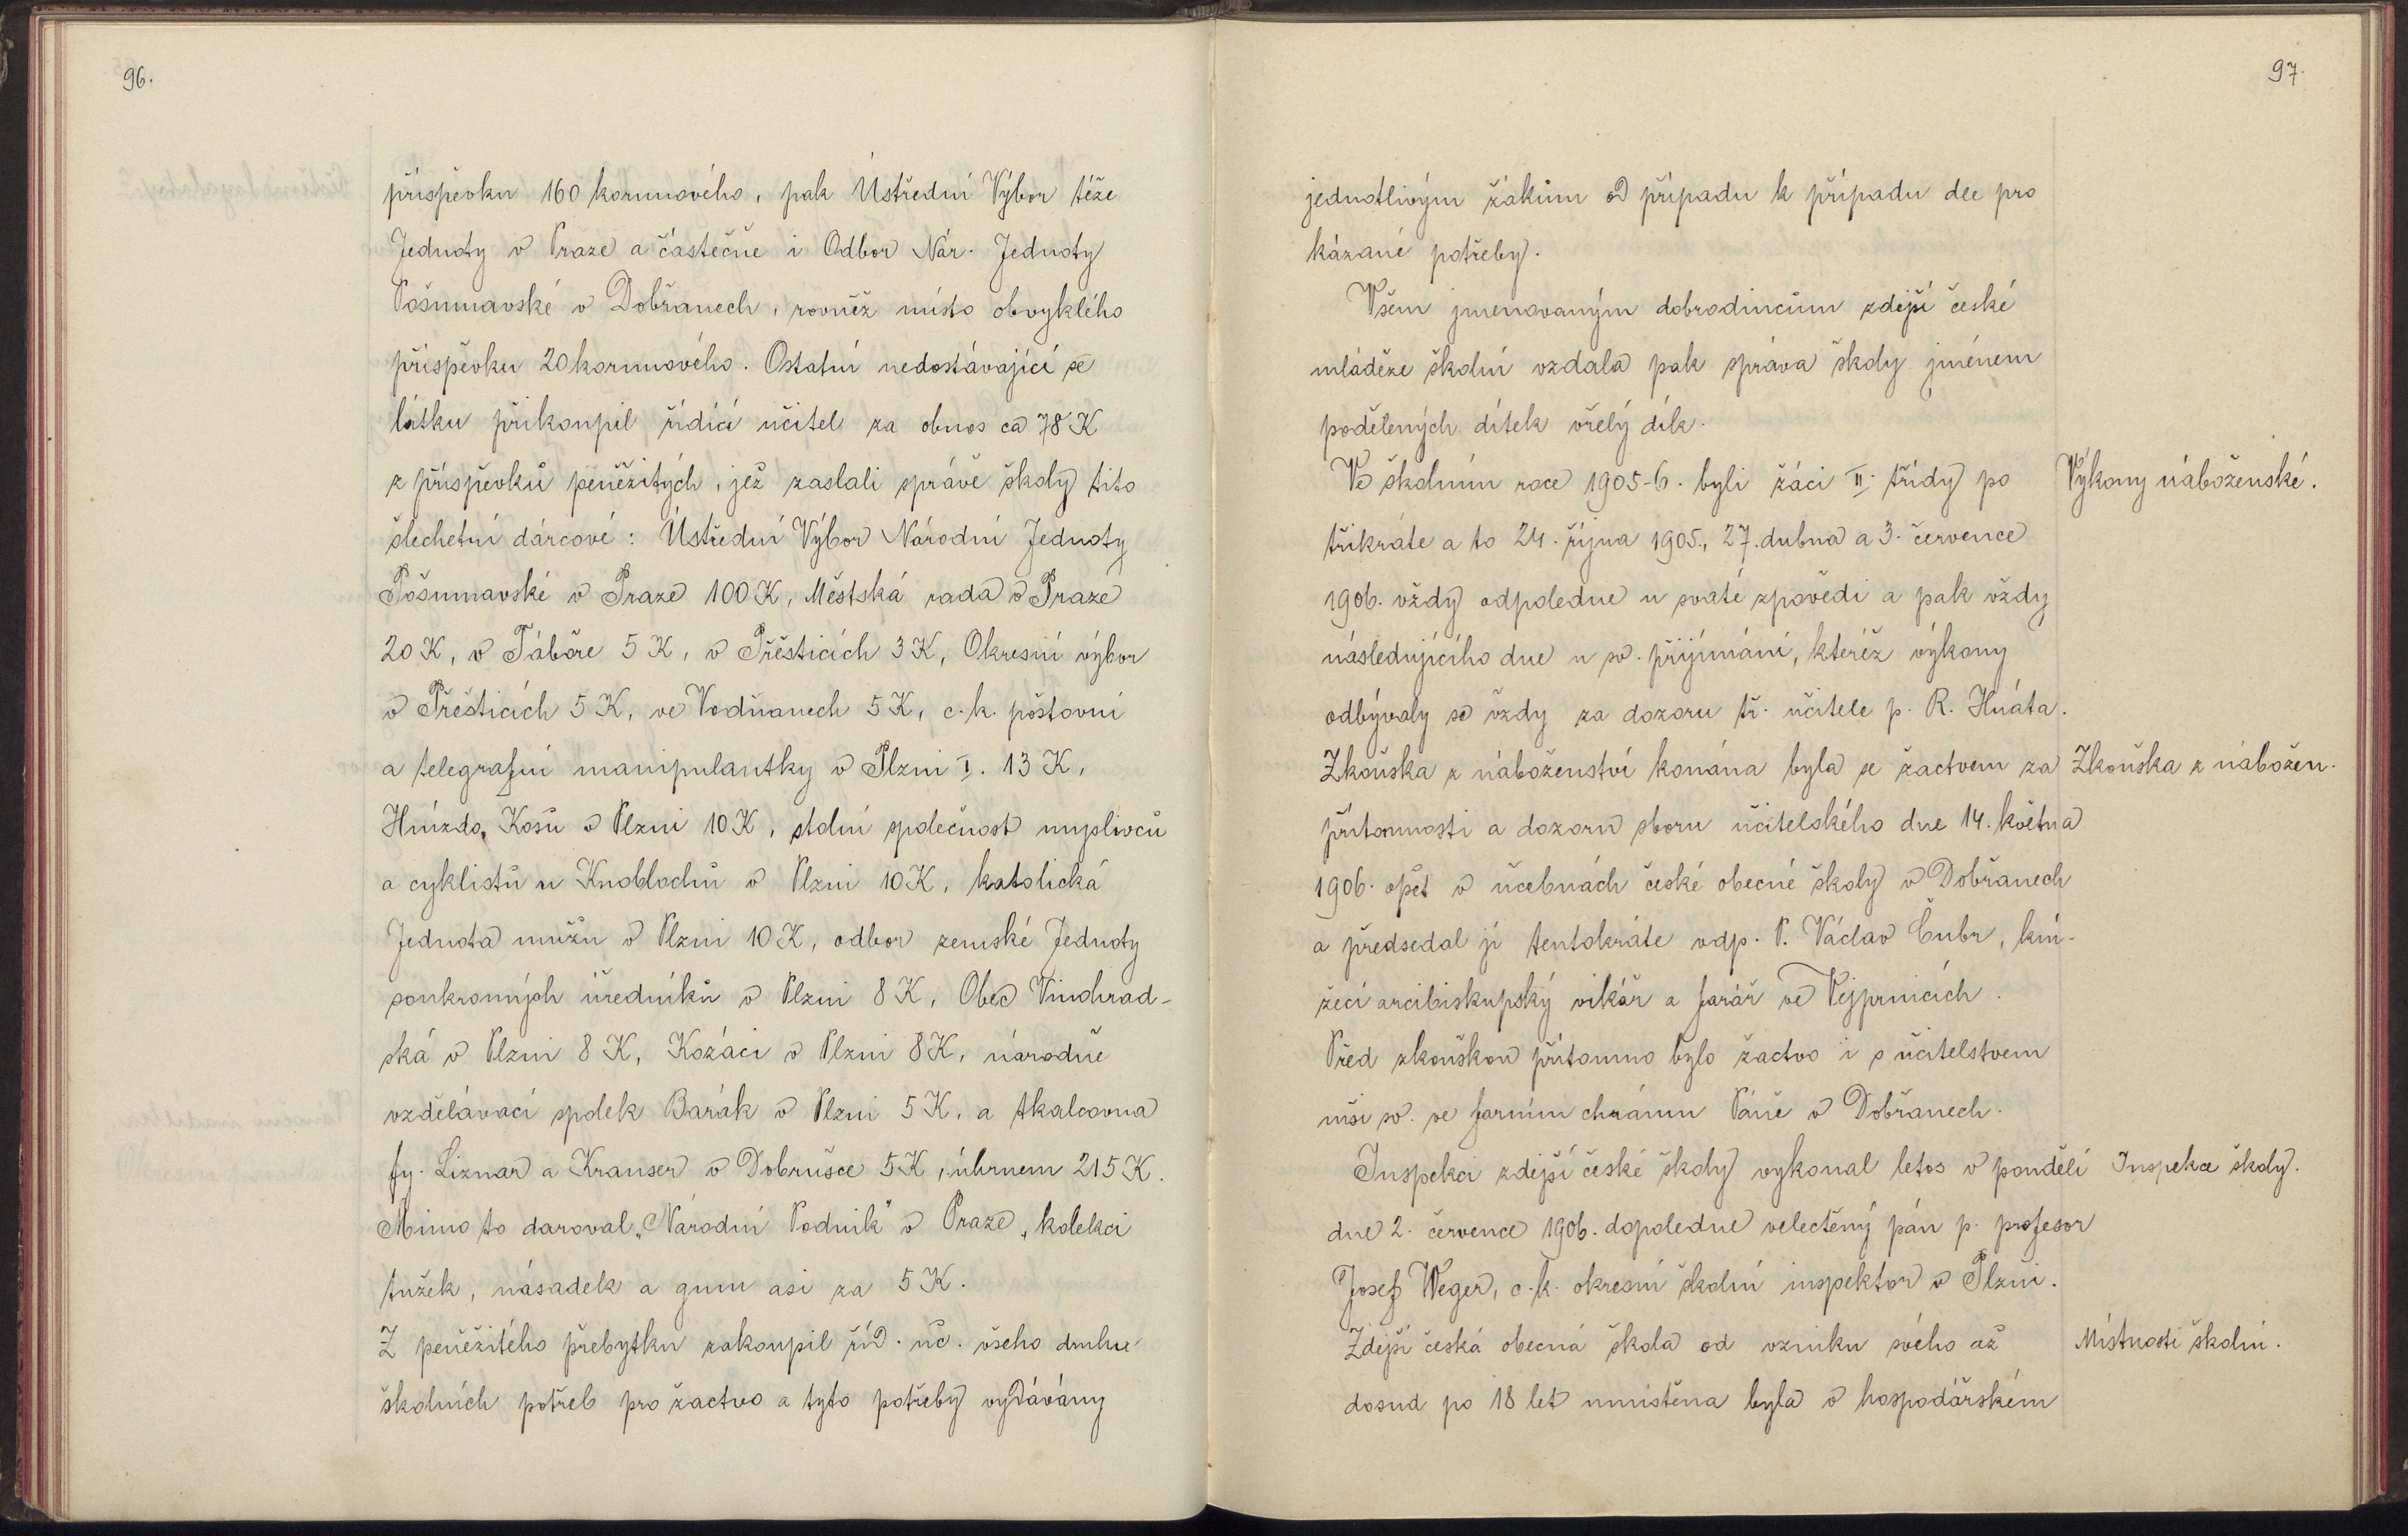 96.
příspěvku 160 korunového, pak Ústřední Výbor téže
Jednoty v Praze a částečně i Odbor Nár. Jednoty
Pošumavské v Dobřanech, rovněž místo obvyklého
příspěvku 20korunového. Ostatní nedostávající se
látku přikoupil řídící učitel za obnos ca 78 K
z příspěvků peněžitých, jež zaslali správě školy tito
šlechetní dárcové: Ústřední Výbor Národní Jednoty
Pošumavské v Praze 100 K, Městská rada v Praze
20 K, v Táboře 5 K, v Přešticích 3 K, Okresní výbor
v Přešticích 5 K, ve Vodňanech 5 K, c. k. poštovní
a telegrafní manipulantky v Plzni I. 13 K,
Hnízdo Kosů v Plzni 10 K, stolní společnost myslivců
a cyklistů u Knoblochů v Plzni 10 K, katolická
Jednota mužů v Plzni 10 K, odbor zemské Jednoty
soukromných úředníků v Plzni 8 K, Obec Vinohrad-
ská v Plzni 8 K, Kozáci v Plzni 8 K, národně
vzdělávací spolek Barák v Plzni 5 K, a tkalcovna
fy. Liznar a Krauser v Dobrušce 5 K, úhrnem 215 K.
Mimo to daroval „Národní Podnik“ v Praze, kolekci
tužek, násadek a gum asi za 5 K.
Z peněžitého přebytku zakoupil říd. uč. všeho druhu
školních potřeb pro žactvo a tyto potřeby vydávány
97.
jednotlivým žákům od případu k případu dle pro
kázané potřeby.
Všem jmenovaným dobrodincům zdejší české
mládeže školní vzdala pak správa školy jménem
podělených dítek vřelý dík.
Ve školním roce 1905-6. byli žáci II. třídy po
Výkony náboženské.
třikráte a to 24. října 1905., 27. dubna a 3. července
1906. vždy odpoledne u svaté zpovědi a pak vždy
následujícího dne u sv. přijímání, kteréž výkony
odbývaly se vždy za dozoru tř. učitele p. R. Hnáta.
Zkouška z náboženství konána byla se žactvem za
Zkouška z nábožen.
přítomnosti a dozoru sboru učitelského dne 14. května
1906. opět v učebnách české obecné školy v Dobřanech
a předsedal jí tentokráte vdp. P. Václav Čubr, kní-
žecí arcibiskupský vikář a farář ve Vejprnicích.
Před zkouškou přítomno bylo žactvo i s učitelstvem
mši sv. ve farním chrámu Páně v Dobřanech.
Inspekci zdejší české školy vykonal letos v pondělí
Inspekce školy.
dne 2. července 1906. dopoledne velectěný pán p. profesor
Josef Weger, c. k. okresní školní inspektor v Plzni.
Zdejší česká obecná škola od vzniku svého až
Místnosti školní.
dosud po 18 let umístěna byla v hospodářském